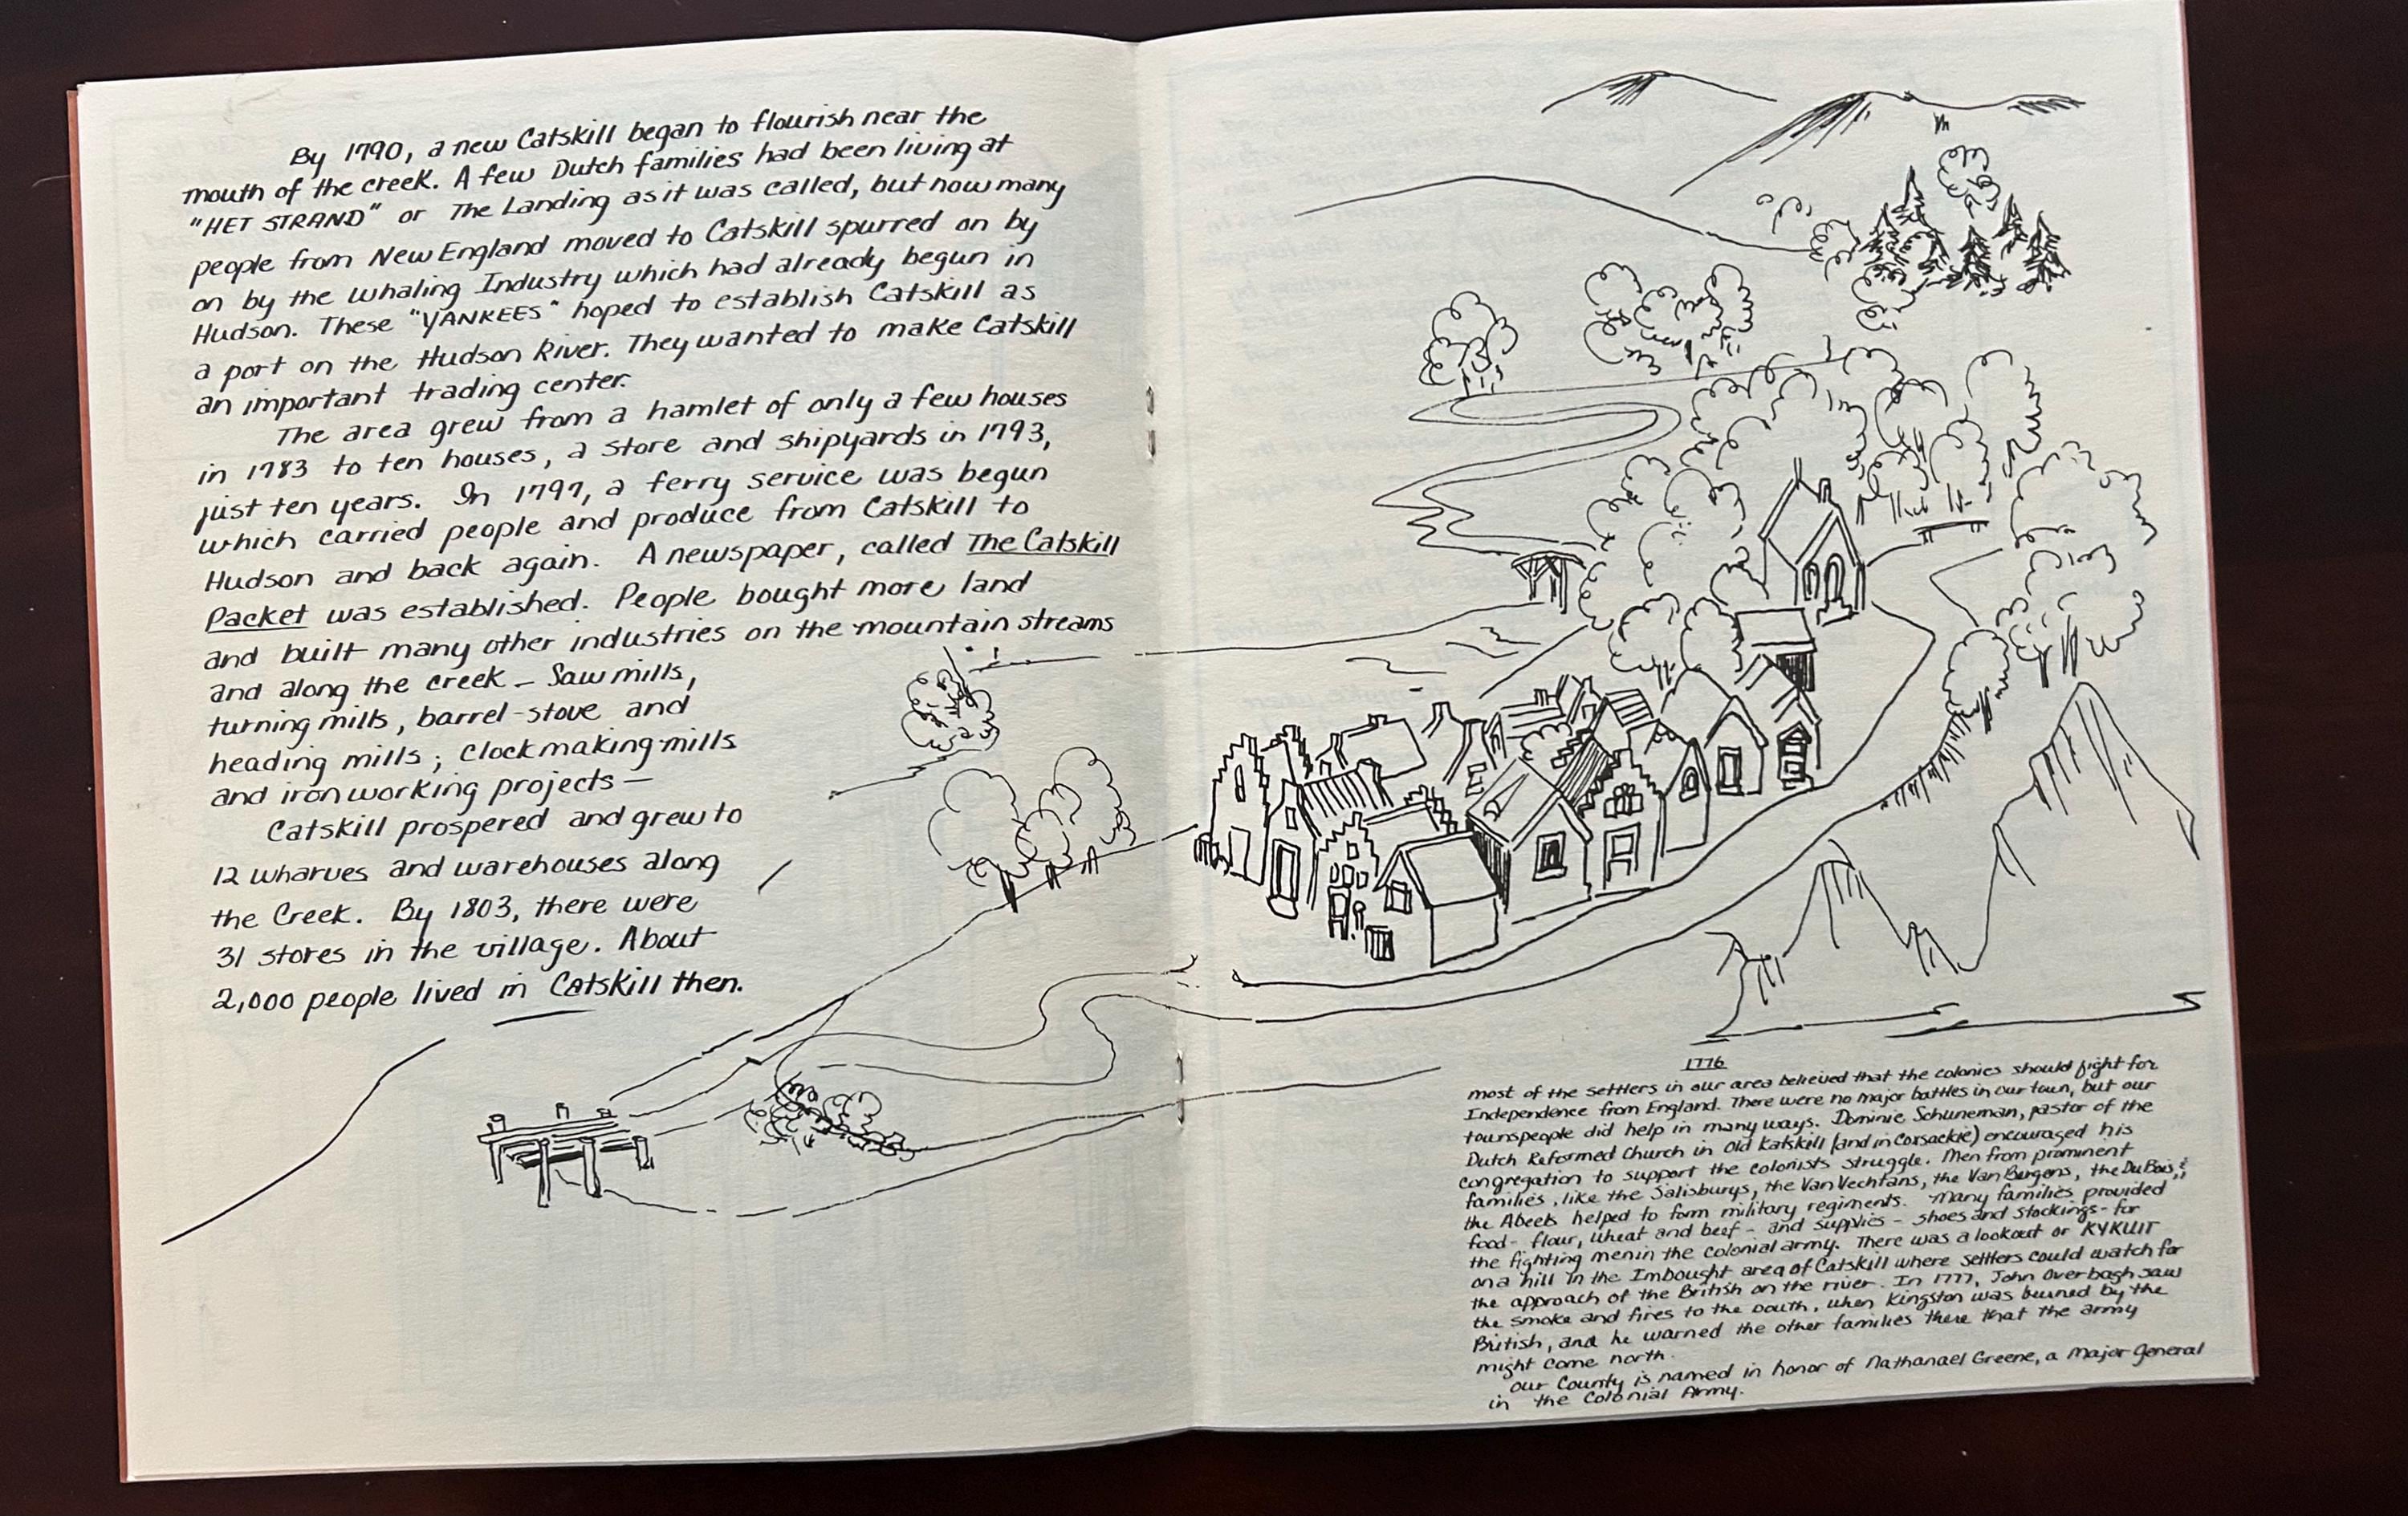 By 1790, a new Catskill began to flourish near the
mouth of the creek. A few Dutch families had been living at
"HET STRAND" or The Landing as it was called, but now many
people from New England moved to Catskill spurred on by
on by the whaling Industry which had already begun in
Hudson. These "YANKEES" hoped to establish Catskill as
a port on the Hudson River. They wanted to make Catskill
an important trading center.
The area grew from a hamlet of only a few houses
in 1783 to ten houses, a store and shipyards in 1793,
just ten years. In 1797, a ferry service was begun
which carried people and produce from Catskill to
Hudson and back again. A newspaper, called The Catskill
Packet was established. People bought more land
and built many other industries on the mountain streams
and along the creek — Saw mills,
turning mills, barrel-stove and
heading mills; Clockmaking mills
and ironworking projects —
Catskill prospered and grew to
12 wharves and warehouses along
the Creek. By 1803, there were
31 stores in the village. About
2,000 people lived in Catskill then.
1776
most of the settlers in our area believed that the colonies should fight for
Independence from England. There were no major battles in our town, but our
townspeople did help in many ways. Dominie Schuneman, pastor of the
Dutch Reformed Church in Old Katskill (and in Coxsackie) encouraged his
congregation to support the colonists struggle. Men from prominent
families, like the Salisburys, the Van Vechtans, the Van Bergens, the DuBois, &
the Abeels helped to form military regiments. Many families provided
food - flour, wheat and beef - and supplies - shoes and stockings - for
the fighting men in the colonial army. There was a lookout or KYKUIT
on a hill in the Imbought area of Catskill where settlers could watch for
the approach of the British on the river. In 1777, John Overbagh saw
the smoke and fires to the south, when Kingston was burned by the
British, and he warned the other families there that the army
might come north.
Our County is named in honor of Nathanael Greene, a Major General
in the Colonial Army.